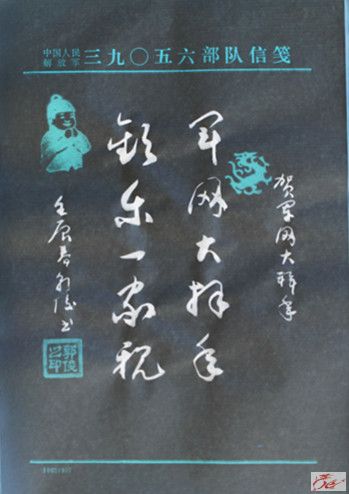 中国人民
解放军
三九〇五六部队信笺
贺军网大拜年
军网大拜年
乐一家
壬辰春郭俊书
郭俊
之印